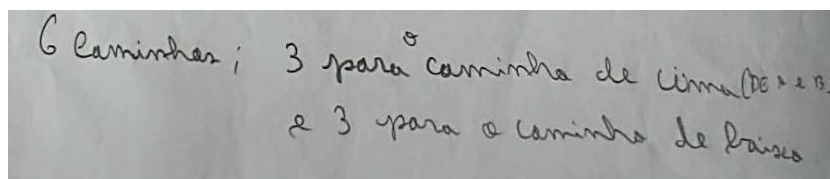 6 Caminhos; 3 para o caminho de cima (DE A e B)
e 3 para o caminho de baixo